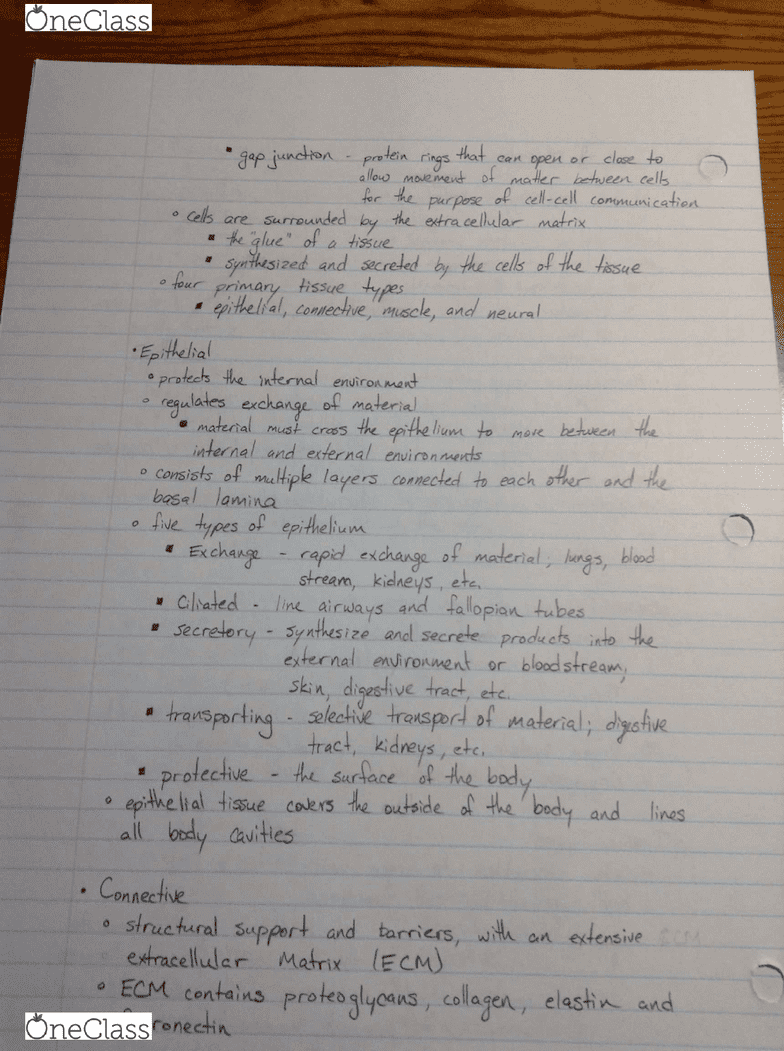 OneClass
▪ gap junction - protein rings that can open or close to
allow movement of matter between cells
for the purpose of cell-cell communication
◦ cells are surrounded by the extracellular matrix
▪ the "glue" of a tissue
▪ synthesized and secreted by the cells of the tissue
◦ four primary tissue types
▪ epithelial, connective, muscle, and neural
• Epithelial
◦ protects the internal environment
◦ regulates exchange of material
▪ material must cross the epithelium to move between the
internal and external environments
◦ consists of multiple layers connected to each other and the
basal lamina
◦ five types of epithelium
▪ Exchange - rapid exchange of material; lungs, blood
stream, kidneys, etc.
▪ Ciliated - line airways and fallopian tubes
▪ secretory - synthesize and secrete products into the
external environment or bloodstream;
skin, digestive tract, etc.
▪ transporting - selective transport of material; digestive
tract, kidneys, etc.
▪ protective - the surface of the body
◦ epithelial tissue covers the outside of the body and lines
all body cavities
• Connective
◦ structural support and barriers, with an extensive
extracellular Matrix (ECM)
◦ ECM contains proteoglycans, collagen, elastin and
ronectin
OneClass